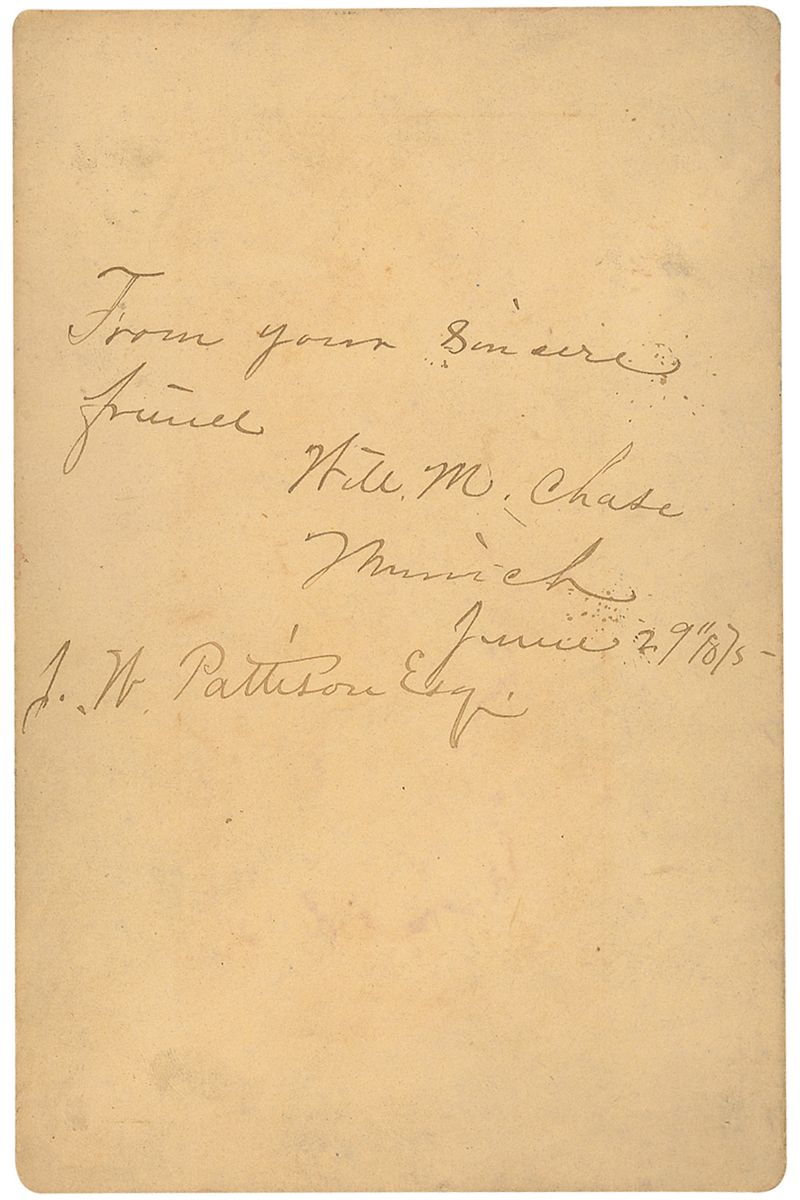 From your sincere
friend
Will. M. Chase
Munich
June 29" 1875-
J. W. Pattison Esq.